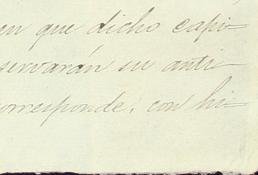 en que dicho capi-
servarán su anti-
orresponde, con hi-